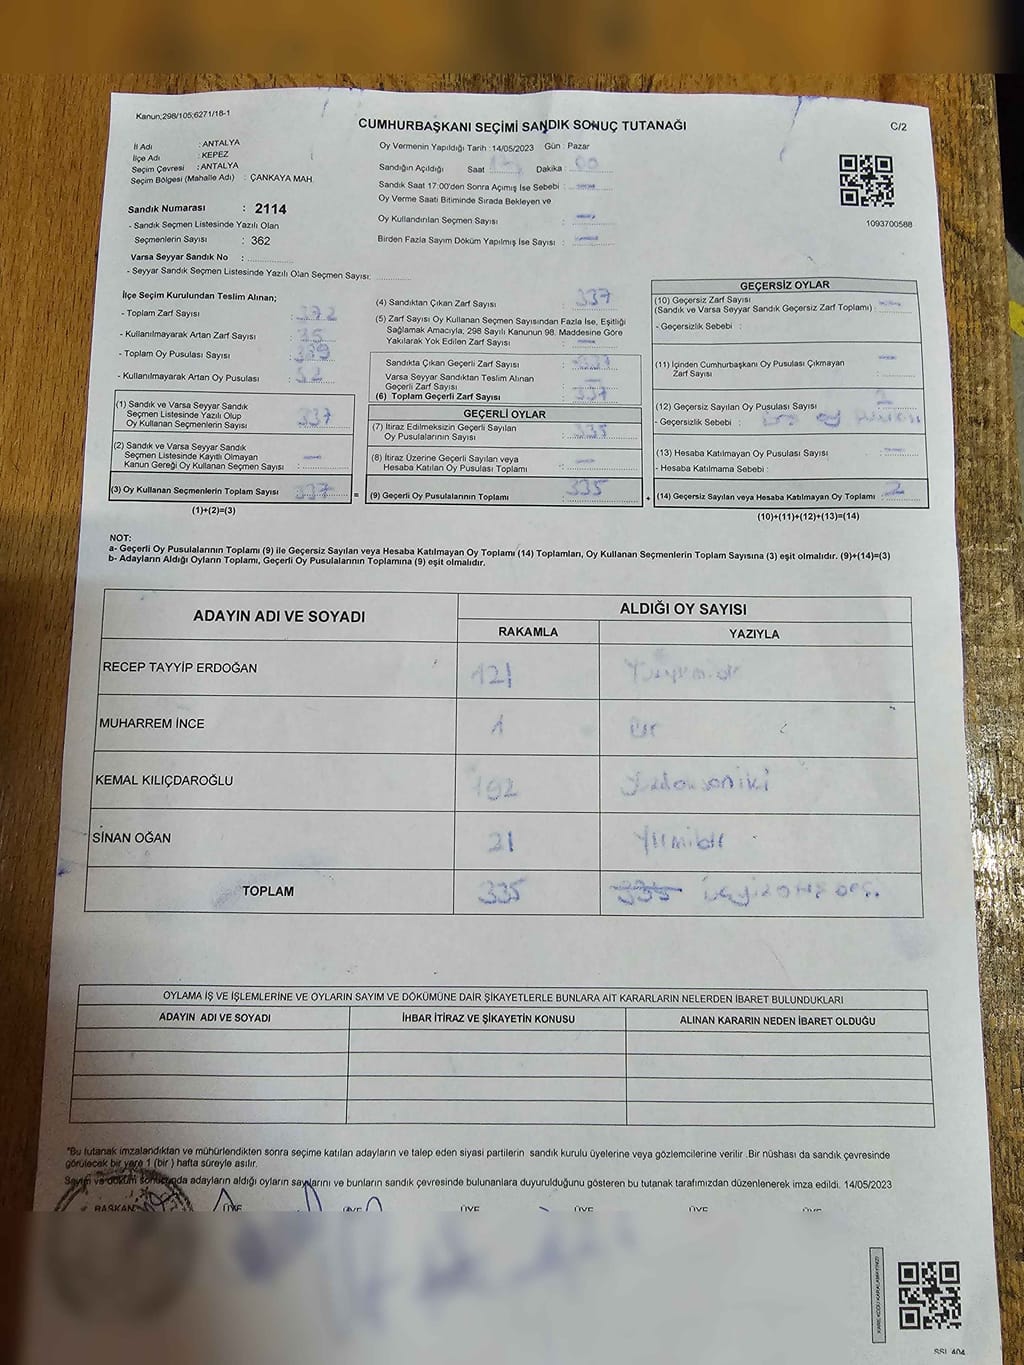 Kanun;298/105;6271/18-1
CUMHURBAŞKANI SEÇİMİ SANDIK SONUÇ TUTANAĞI
C/2
İl Adı : ANTALYA
İlçe Adı : KEPEZ
Seçim Çevresi : ANTALYA
Seçim Bölgesi (Mahalle Adı) : ÇANKAYA MAH.
Sandık Numarası : 2114
- Sandık Seçmen Listesinde Yazılı Olan
Seçmenlerin Sayısı : 362
Varsa Seyyar Sandık No :
- Seyyar Sandık Seçmen Listesinde Yazılı Olan Seçmen Sayısı:
Oy Vermenin Yapıldığı Tarih : 14/05/2023 Gün : Pazar
Sandığın Açıldığı Saat Dakika : 00
Sandık Saat 17:00'den Sonra Açımış İse Sebebi : —
Oy Verme Saati Bitiminde Sırada Bekleyen ve
Oy Kullandırılan Seçmen Sayısı : —
Birden Fazla Sayım Döküm Yapılmış İse Sayısı : —
1093700588
İlçe Seçim Kurulundan Teslim Alınan;
- Toplam Zarf Sayısı : 372
- Kullanılmayarak Artan Zarf Sayısı : 35
- Toplam Oy Pusulası Sayısı : 389
- Kullanılmayarak Artan Oy Pusulası : 52
(1) Sandık ve Varsa Seyyar Sandık
Seçmen Listesinde Yazılı Olup
Oy Kullanan Seçmenlerin Sayısı : 337
(2) Sandık ve Varsa Seyyar Sandık
Seçmen Listesinde Kayıtlı Olmayan
Kanun Gereği Oy Kullanan Seçmen Sayısı : —
(3) Oy Kullanan Seçmenlerin Toplam Sayısı : 337 =
(1)+(2)=(3)
(4) Sandıktan Çıkan Zarf Sayısı : 337
(5) Zarf Sayısı Oy Kullanan Seçmen Sayısından Fazla İse, Eşitliği
Sağlamak Amacıyla, 298 Sayılı Kanunun 98. Maddesine Göre
Yakılarak Yok Edilen Zarf Sayısı : —
Sandıkta Çıkan Geçerli Zarf Sayısı : 337
Varsa Seyyar Sandıktan Teslim Alınan
Geçerli Zarf Sayısı : —
(6) Toplam Geçerli Zarf Sayısı : 337
GEÇERLİ OYLAR
(7) İtiraz Edilmeksizin Geçerli Sayılan
Oy Pusulalarının Sayısı : 335
(8) İtiraz Üzerine Geçerli Sayılan veya
Hesaba Katılan Oy Pusulası Toplamı : —
(9) Geçerli Oy Pusulalarının Toplamı : 335 +
GEÇERSİZ OYLAR
(10) Geçersiz Zarf Sayısı
(Sandık ve Varsa Seyyar Sandık Geçersiz Zarf Toplamı) : —
- Geçersizlik Sebebi :
(11) İçinden Cumhurbaşkanı Oy Pusulası Çıkmayan
Zarf Sayısı : —
(12) Geçersiz Sayılan Oy Pusulası Sayısı : 2
- Geçersizlik Sebebi : oy
(13) Hesaba Katılmayan Oy Pusulası Sayısı : —
- Hesaba Katılmama Sebebi :
(14) Geçersiz Sayılan veya Hesaba Katılmayan Oy Toplamı : 2
(10)+(11)+(12)+(13)=(14)
NOT:
a- Geçerli Oy Pusulalarının Toplamı (9) ile Geçersiz Sayılan veya Hesaba Katılmayan Oy Toplamı (14) Toplamları, Oy Kullanan Seçmenlerin Toplam Sayısına (3) eşit olmalıdır. (9)+(14)=(3)
b- Adayların Aldığı Oyların Toplamı, Geçerli Oy Pusulalarının Toplamına (9) eşit olmalıdır.
ADAYIN ADI VE SOYADI ALDIĞI OY SAYISI
RAKAMLA YAZIYLA
RECEP TAYYİP ERDOĞAN 121
MUHARREM İNCE 1 Bir
KEMAL KILIÇDAROĞLU 192
SİNAN OĞAN 21 Yirmibir
TOPLAM 335 335
OYLAMA İŞ VE İŞLEMLERİNE VE OYLARIN SAYIM VE DÖKÜMÜNE DAİR ŞİKAYETLERLE BUNLARA AİT KARARLARIN NELERDEN İBARET BULUNDUKLARI
ADAYIN ADI VE SOYADI İHBAR İTİRAZ VE ŞİKAYETİN KONUSU ALINAN KARARIN NEDEN İBARET OLDUĞU
"Bu tutanak imzalandıktan ve mühürlendikten sonra seçime katılan adayların ve talep eden siyasi partilerin sandık kurulu üyelerine veya gözlemcilerine verilir .Bir nüshası da sandık çevresinde
görülecek bir yere 1 (bir ) hafta süreyle asılır.
Sayım ve döküm sonucunda adayların aldığı oyların sayılarını ve bunların sandık çevresinde bulunanlara duyurulduğunu gösteren bu tutanak tarafımızdan düzenlenerek imza edildi. 14/05/2023
BAŞKAN ÜYE ÜYE ÜYE ÜYE ÜYE ÜYE